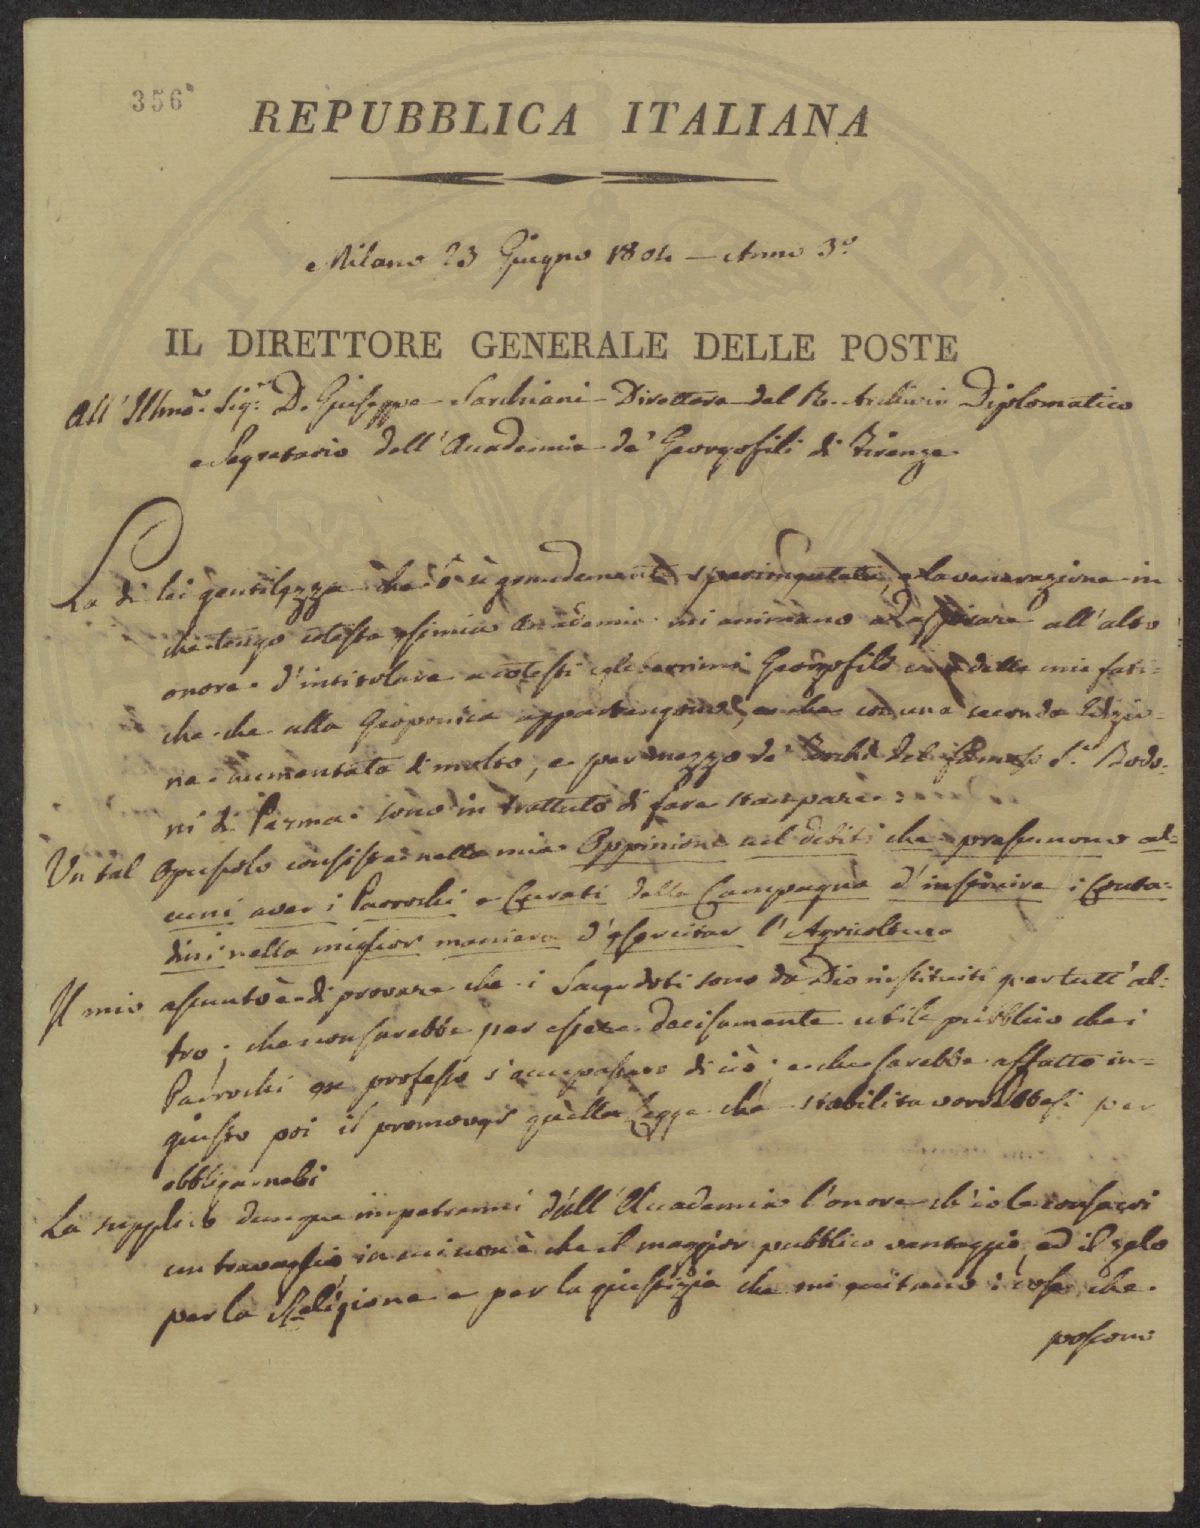 356
REPUBBLICA ITALIANA
Milano 23 Giugno 1804 — Anno 3.º
IL DIRETTORE GENERALE DELLE POSTE
All' Illmo. Sigr. D. Giuseppe Sarchiani Direttore del R. Archivio Diplomatico
e Segretario dell' Accademia de' Georgofili di Firenze
La di lei gentilezza che ò sì grandemente sperimentata, e la venerazione in
che tengo cotesta esimia Accademia mi animano ad aspirare all' alto
onore d'intitolare a cotesti celeberrimi Georgofili una delle mie fati=
che che alla Geoponica appartengono, e che con una seconda Edizio=
ne aumentata di molto, e per mezzo de' Torchi del famoso Sr. Bodo=
ni di Parma sono in trattato di fare stampare.
Un tal Opuscolo consiste nella mia Oppinione sul debito che presumono al=
cuni aver i Parrochi e Curati della Campagna d'instruire i Conta=
dini nella miglior maniera d'esercitar l'Agricoltura
Il mio assunto è di provare che i Sacerdoti sono da Dio instituiti per tutt' al=
tro; che non sarebbe per essere decisamente utile pubblico che i
Parrochi ex professo s'occupassero di ciò; e che sarebbe affatto in=
giusto poi il promover quella Legge che stabilita vorrebbesi per
obbligarveli
La supplico dunque impetrarmi dall' Accademia l'onore ch'io le consacri
un travaglio in cui non è che il maggior pubblico vantaggio, ed il zelo
per la Religione e per la giustizia che mi guitano; cose che
possono